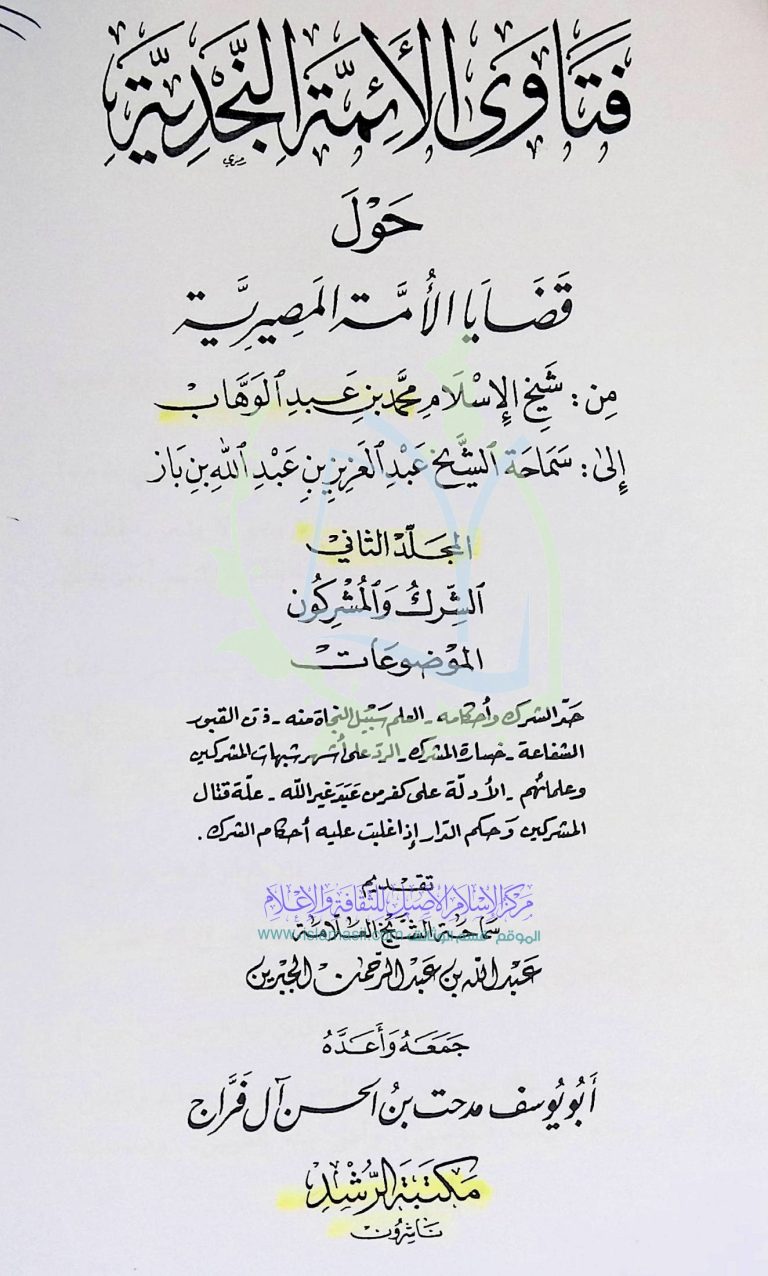 فَتَاوَى الأَئِمَّة النَّجْدِيَّة
حَوْلَ
قَضَايَا الأُمَّة المَصِيرِيَّة
مِن: شَيْخِ الإِسْلَامِ مُحَمَّد بْنِ عَبدِ الوَهَّاب
إِلىٰ: سَمَاحَة الشَّيْخ عَبْدِ العَزِيزِ بنِ عَبْدِ اللهِ بنِ بَاز
المجَلّد الثاني
الشِّركُ وَالمُشْرِكُون
الموْضوعَات
حَدّ الشرك وأحكامه - العلم سَبيْل النجاة منه - فتن القبور
الشفاعة - خسارة المشرك - الرد على أشهر شبهات المشركين
وعلمائهم - الأدلّة على كفر من عَبَد غير الله - علّة قتال
المشركين وَحكم الدّار إذا غلبت عليه أحكام الشرك.
تقديم
مركز الإسلام الأصيل للثقافة والإعلام
سَمَاحَة الشَّيْخ العَلّامَة
الموقع قسم الوثائق www.islamasil.com
عَبْد الله بن عَبْد الرّحمٰن الجبرين
جَمَعَهُ وَأَعَدَّهُ
أَبُو يُوسف مدحت بنُ الحسن آل فَرَّاج
مَكتَبَة الرُّشْدِ
نَاشِرُون